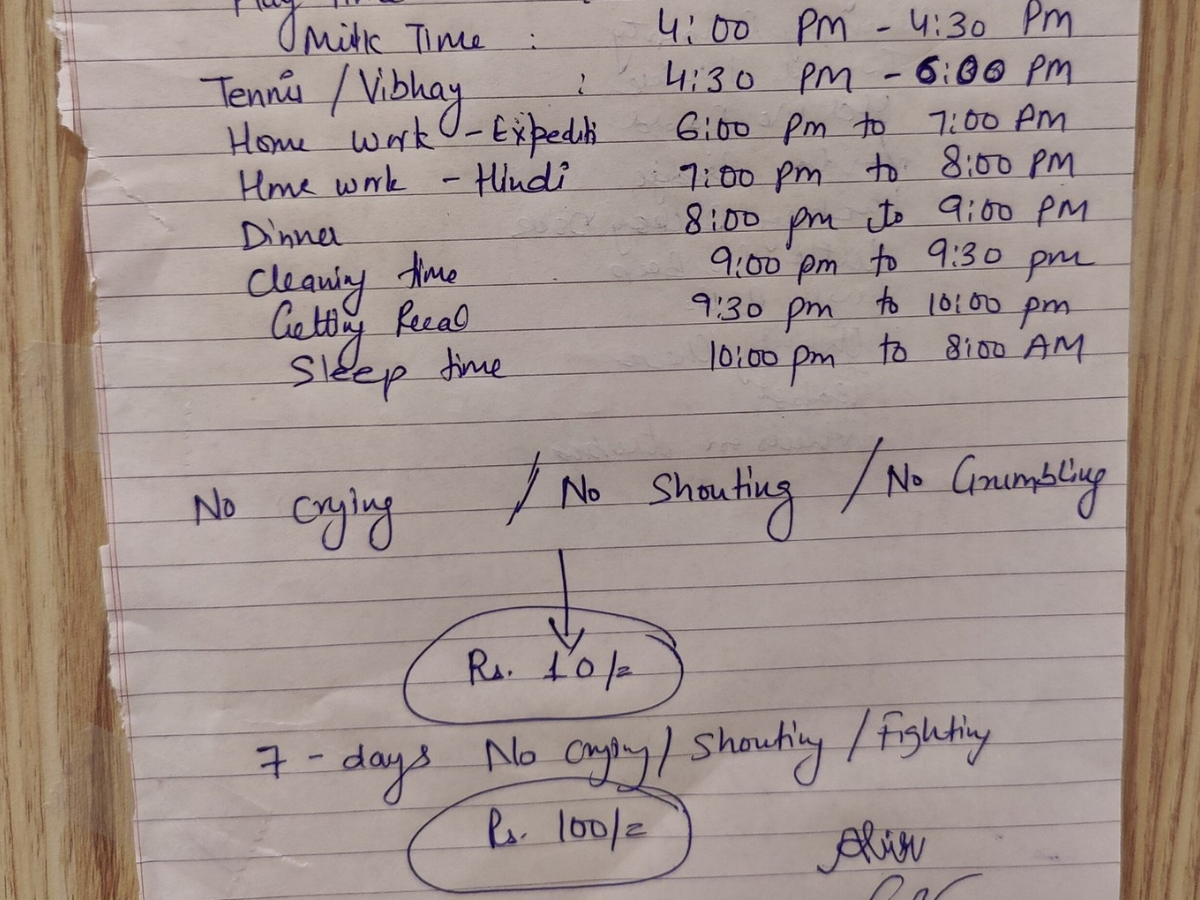 Play Time
Milk Time : 4:00 PM - 4:30 PM
Tennis / Vibhay : 4:30 PM - 6:00 PM
Home work - Expediti 6:00 Pm to 7:00 PM
Hme work - Hindi 7:00 pm to 8:00 PM
Dinner 8:00 pm to 9:00 PM
Cleaning time 9:00 pm to 9:30 pm
Getting 9:30 pm to 10:00 pm
Sleep time 10:00 pm to 8:00 AM
No crying / No Shouting / No Grumbling
Rs. 10/=
7 - days No crying / Shouting / Fighting
Rs. 100/=